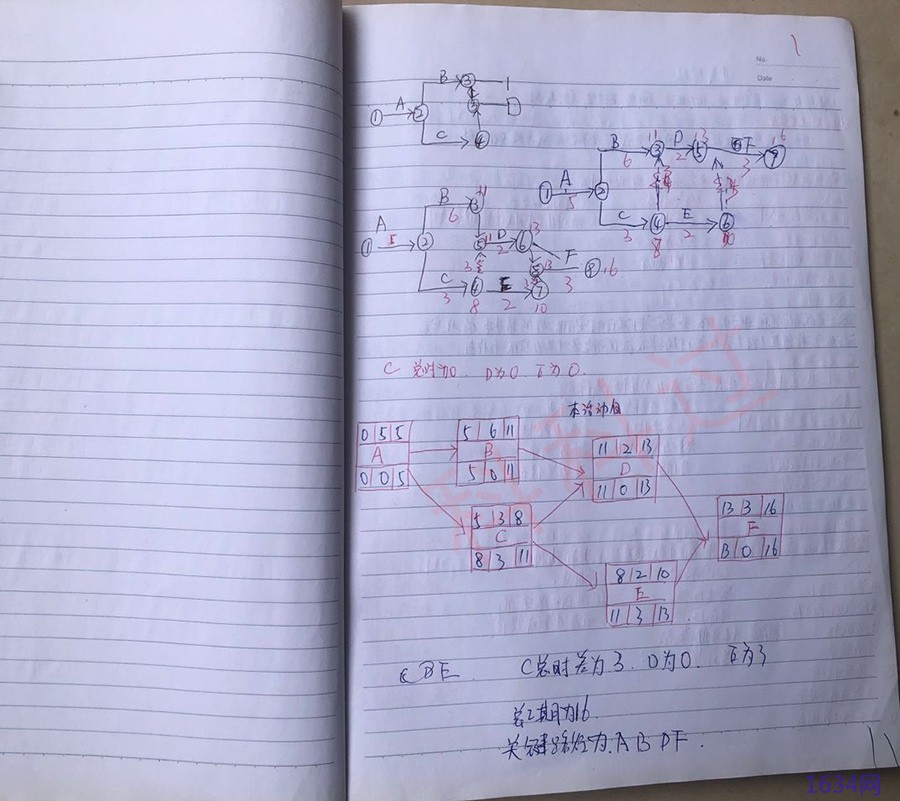 No.
Date
1
B ③
① A ②
C ④
B 6 ③ 11 D 2 ⑤ 13 F 3 ⑦ 16
① A 5 ②
C 3 ④ 8 E 2 ⑥ 10
B 6 ③ 11
A
① 5 ② ⑤ 11 D 2 ⑥ 13 F 3 ⑨ 16
C 3 ④ 8 E 2 ⑦ 10
C 总时为0 D为0 E为0.
本活动自
0 5 5
A
0 0 5
5 6 11
B
5 0 11
11 2 13
D
11 0 13
5 3 8
C
8 3 11
13 3 16
F
13 0 16
8 2 10
E
11 3 13
C D E C总时差为3. D为0. E为3
总工期为16.
关键路径为.A B D F.
1634网